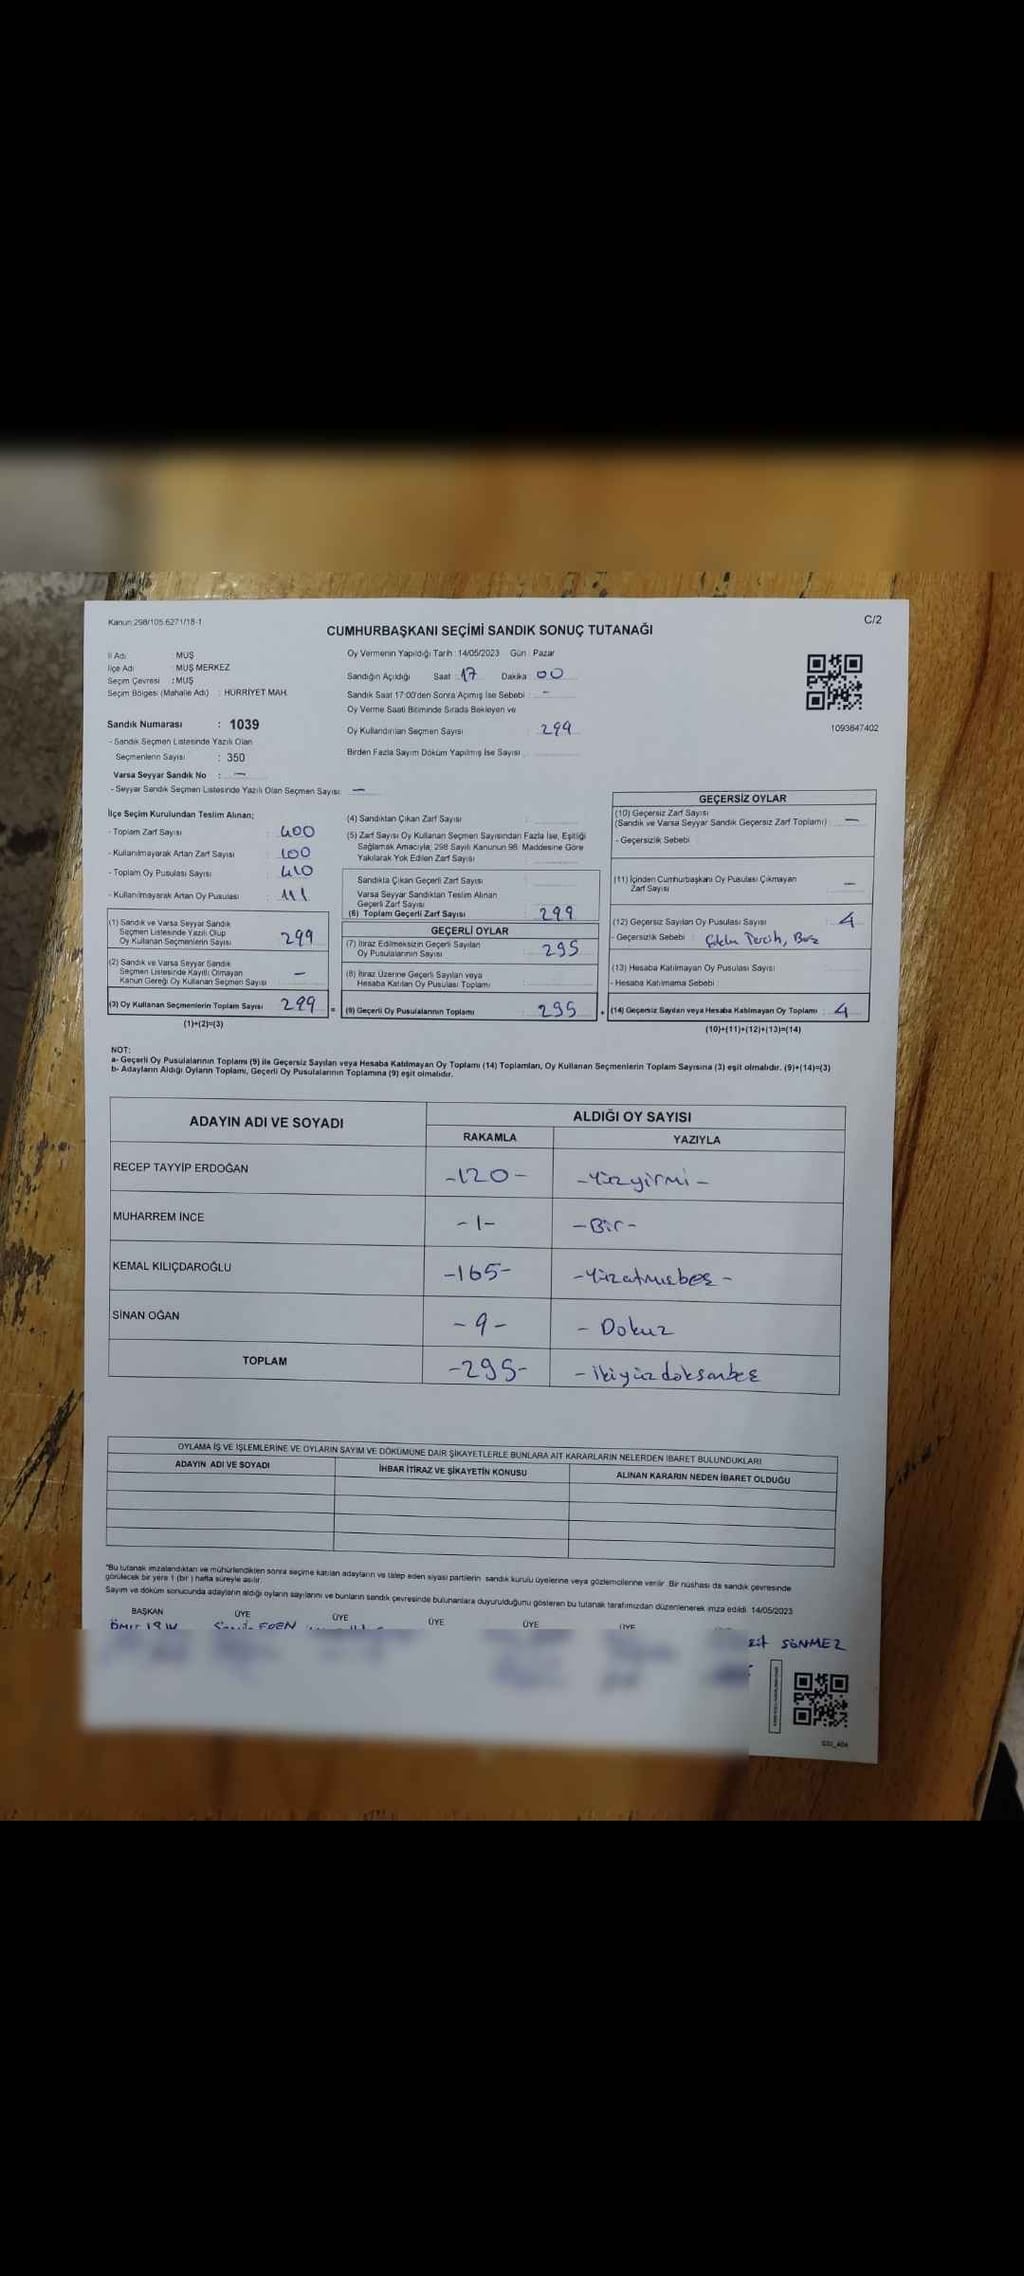 Kanun 298/105 6271/18-1
C/2
CUMHURBAŞKANI SEÇİMİ SANDIK SONUÇ TUTANAĞI
İl Adı : MUŞ
İlçe Adı : MUŞ MERKEZ
Seçim Çevresi : MUŞ
Seçim Bölgesi (Mahalle Adı) : HÜRRİYET MAH.
Sandık Numarası : 1039
- Sandık Seçmen Listesinde Yazılı Olan
Seçmenlerin Sayısı : 350
Varsa Seyyar Sandık No : —
- Seyyar Sandık Seçmen Listesinde Yazılı Olan Seçmen Sayısı: —
Oy Vermenin Yapıldığı Tarih : 14/05/2023 Gün : Pazar
Sandığın Açıldığı Saat : 17 Dakika : 00
Sandık Saat 17:00'den Sonra Açımış İse Sebebi : -
Oy Verme Saati Bitiminde Sırada Bekleyen ve
Oy Kullandırılan Seçmen Sayısı : 299
Birden Fazla Sayım Döküm Yapılmış İse Sayısı :
1093647402
İlçe Seçim Kurulundan Teslim Alınan;
- Toplam Zarf Sayısı : 400
- Kullanılmayarak Artan Zarf Sayısı : 100
- Toplam Oy Pusulası Sayısı : 410
- Kullanılmayarak Artan Oy Pusulası : 111
(1) Sandık ve Varsa Seyyar Sandık
Seçmen Listesinde Yazılı Olup
Oy Kullanan Seçmenlerin Sayısı 299
(2) Sandık ve Varsa Seyyar Sandık
Seçmen Listesinde Kayıtlı Olmayan
Kanun Gereği Oy Kullanan Seçmen Sayısı —
(3) Oy Kullanan Seçmenlerin Toplam Sayısı 299
(1)+(2)=(3)
(4) Sandıktan Çıkan Zarf Sayısı :
(5) Zarf Sayısı Oy Kullanan Seçmen Sayısından Fazla İse, Eşitliği
Sağlamak Amacıyla; 298 Sayılı Kanunun 98. Maddesine Göre
Yakılarak Yok Edilen Zarf Sayısı :
Sandıkta Çıkan Geçerli Zarf Sayısı
Varsa Seyyar Sandıktan Teslim Alınan
Geçerli Zarf Sayısı
(6) Toplam Geçerli Zarf Sayısı 299
GEÇERLİ OYLAR
(7) İtiraz Edilmeksizin Geçerli Sayılan
Oy Pusulalarının Sayısı 295
(8) İtiraz Üzerine Geçerli Sayılan veya
Hesaba Katılan Oy Pusulası Toplamı
(9) Geçerli Oy Pusulalarının Toplamı 295
GEÇERSİZ OYLAR
(10) Geçersiz Zarf Sayısı
(Sandık ve Varsa Seyyar Sandık Geçersiz Zarf Toplamı) : —
- Geçersizlik Sebebi
(11) İçinden Cumhurbaşkanı Oy Pusulası Çıkmayan
Zarf Sayısı —
(12) Geçersiz Sayılan Oy Pusulası Sayısı : 4
- Geçersizlik Sebebi : Tercih, Boş
(13) Hesaba Katılmayan Oy Pusulası Sayısı
- Hesaba Katılmama Sebebi :
(14) Geçersiz Sayılan veya Hesaba Katılmayan Oy Toplamı : 4
(10)+(11)+(12)+(13)=(14)
NOT:
a- Geçerli Oy Pusulalarının Toplamı (9) ile Geçersiz Sayılan veya Hesaba Katılmayan Oy Toplamı (14) Toplamları, Oy Kullanan Seçmenlerin Toplam Sayısına (3) eşit olmalıdır. (9)+(14)=(3)
b- Adayların Aldığı Oyların Toplamı, Geçerli Oy Pusulalarının Toplamına (9) eşit olmalıdır.
ADAYIN ADI VE SOYADI
ALDIĞI OY SAYISI
RAKAMLA YAZIYLA
RECEP TAYYİP ERDOĞAN -120- -Yüzyirmi-
MUHARREM İNCE -1- -Bir-
KEMAL KILIÇDAROĞLU -165- -Yüzatmışbeş-
SİNAN OĞAN -9- - Dokuz
TOPLAM -295- - ikiyüzdoksanbeş
OYLAMA İŞ VE İŞLEMLERİNE VE OYLARIN SAYIM VE DÖKÜMÜNE DAİR ŞİKAYETLERLE BUNLARA AİT KARARLARIN NELERDEN İBARET BULUNDUKLARI
ADAYIN ADI VE SOYADI İHBAR İTİRAZ VE ŞİKAYETİN KONUSU ALINAN KARARIN NEDEN İBARET OLDUĞU
*Bu tutanak imzalandıktan ve mühürlendikten sonra seçime katılan adayların ve talep eden siyasi partilerin sandık kurulu üyelerine veya gözlemcilerine verilir. Bir nüshası da sandık çevresinde
görülecek bir yere 1 (bir) hafta süreyle asılır.
Sayım ve döküm sonucunda adayların aldığı oyların sayılarını ve bunların sandık çevresinde bulunanlara duyurulduğunu gösteren bu tutanak tarafımızdan düzenlenerek imza edildi. 14/05/2023
BAŞKAN ÜYE ÜYE ÜYE ÜYE ÜYE
SÖNMEZ